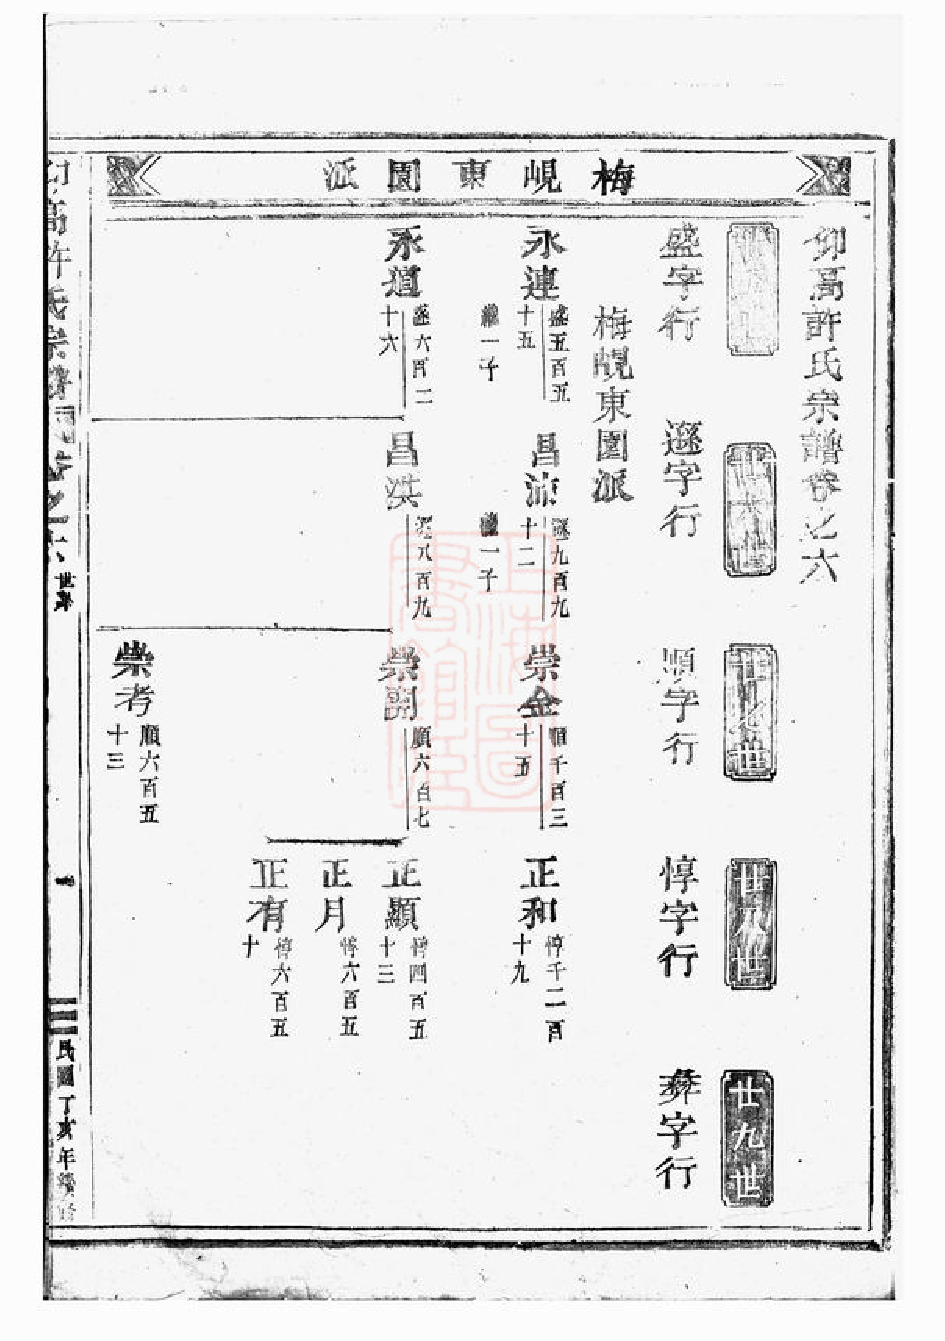 梅峴東園派
仰高許氏宗譜卷之六
廿六世
廿七世
廿八世
廿九世
盛字行
遜字行
順字行
惇字行
彝字行
梅峴東園派
永連
盛五百五
十五
繼一子
昌沛
遜九百九
十二
繼一子
崇金
順千百三
十五
正和
惇千二百
十九
永道
遜六百二
十六
昌洪
八百九
崇開
順六百七
正顯
惇四百五
十三
正月
惇六百五
正有
惇六百五
十
崇考
順六百五
十三
仰高許氏宗譜
卷之六
世系
一
民國丁亥年續修